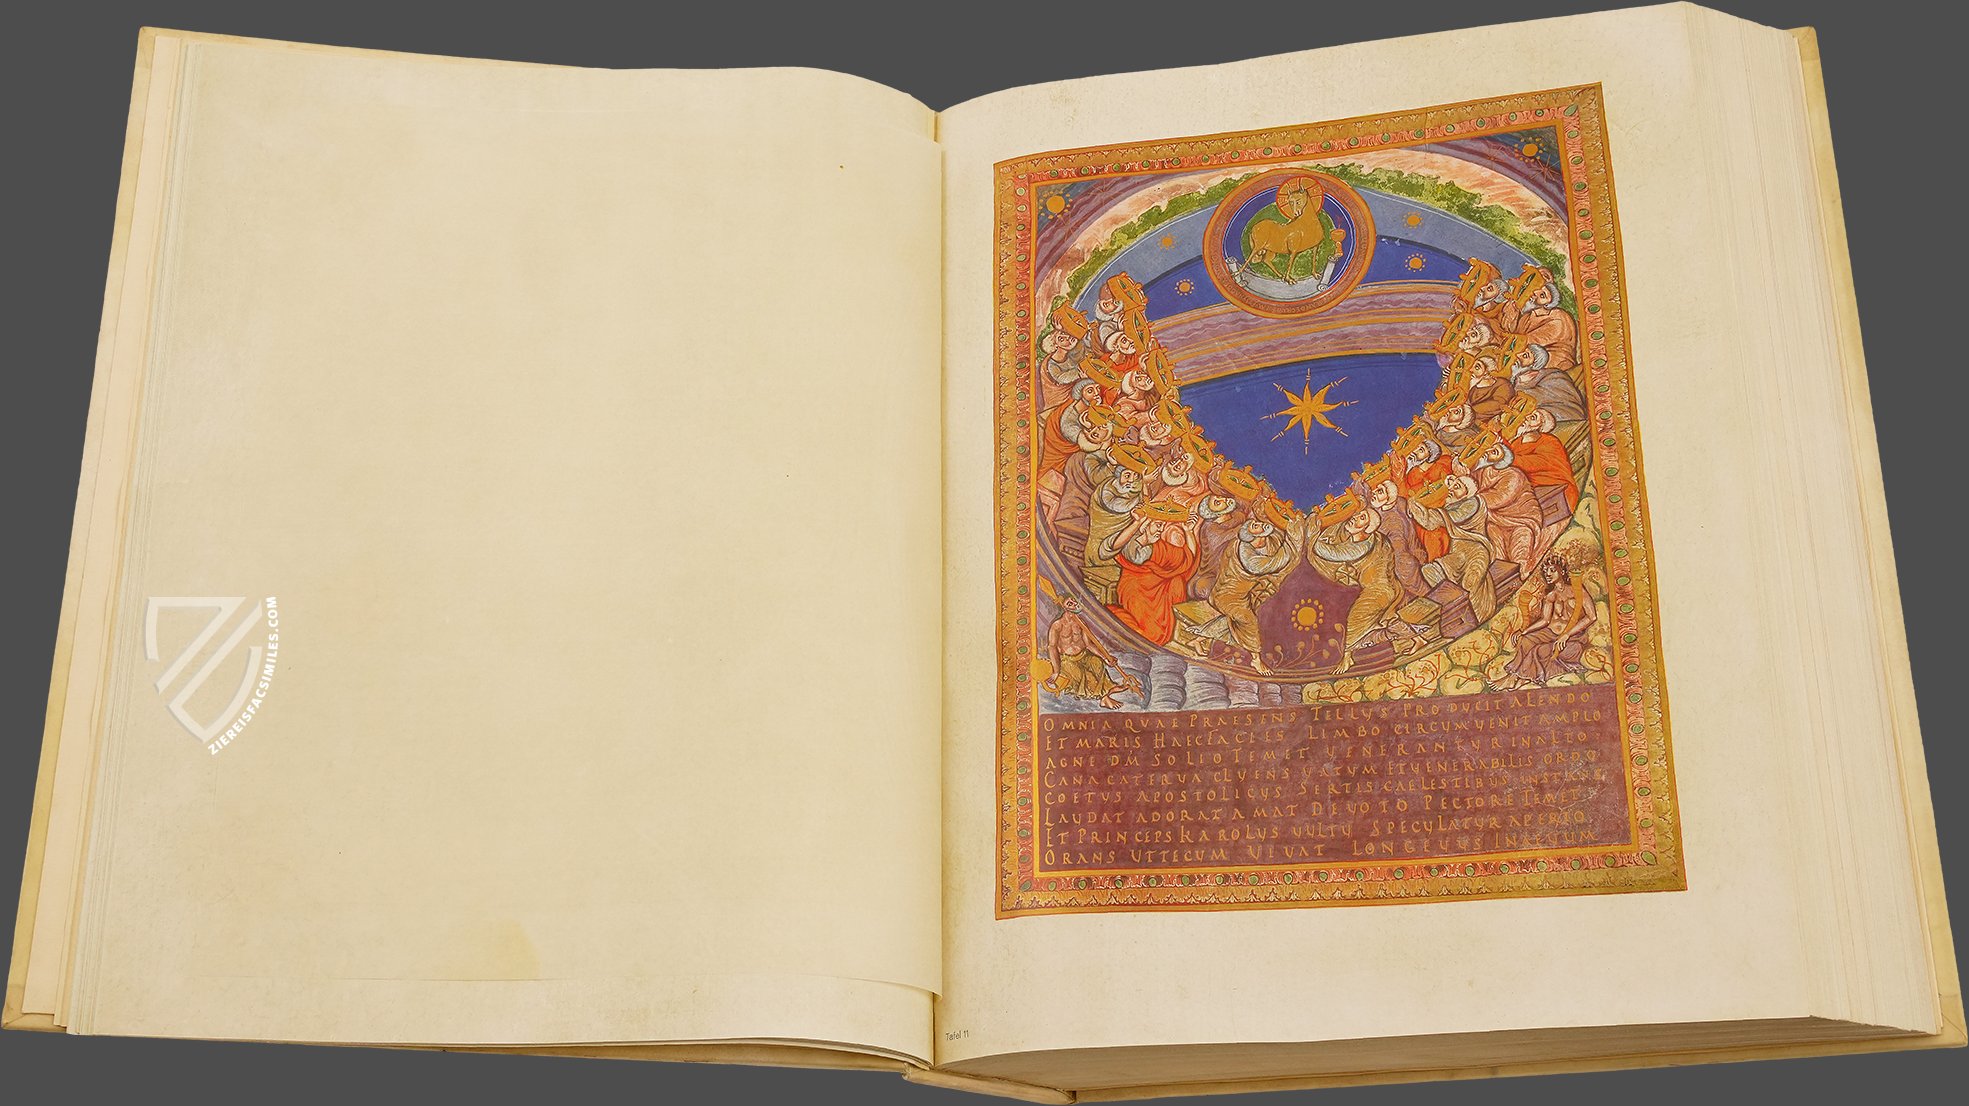 OMNIA QUAE PRAESENS TELLUS PRODUCIT ALENDO
ET MARIS HAEC FACIES LIMBO CIRCUMVENIT AMPLO
AGNE DM SOLIO TEMET VENERANTUR IN ALTO
CANA CATERVA CLUENS VATUM ET VENERABILIS ORDO
COETUS APOSTOLICUS SERTIS CAELESTIBUS INSTANS
LAUDAT ADORAT AMAT DEVOTO PECTORE TEMET
ET PRINCEPS KAROLUS VULTU SPECULATUR APERTO
ORANS UT TECUM VIVAT LONGEVUS IN AEVUM
Tafel 11
ZIEREISFACSIMILES.COM